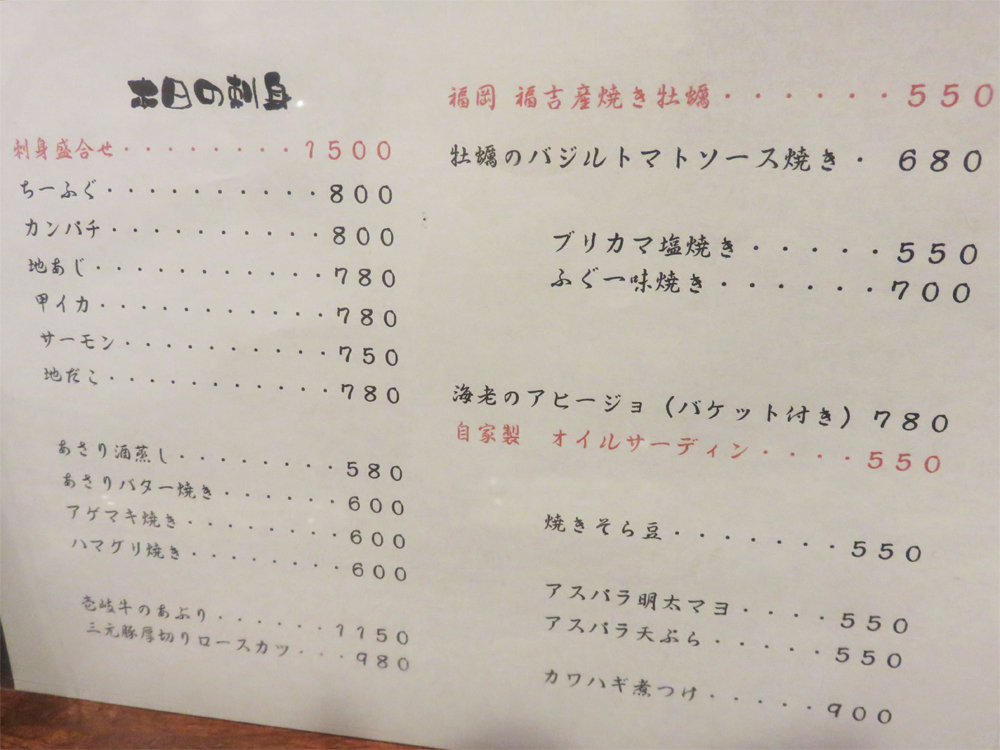 本日の刺身
刺身盛合せ・・・・・・・・・1500
ちーふぐ・・・・・・・・・・・800
カンパチ・・・・・・・・・・・800
地あじ・・・・・・・・・・・・780
甲イカ・・・・・・・・・・・・780
サーモン・・・・・・・・・・・750
地だこ・・・・・・・・・・・・780
あさり酒蒸し・・・・・・・・・580
あさりバター焼き・・・・・・・600
アゲマキ焼き・・・・・・・・・600
ハマグリ焼き・・・・・・・・・600
壱岐牛のあぶり・・・・・・・1150
三元豚厚切りロースカツ・・・980
福岡 福吉産焼き牡蠣・・・・・・・550
牡蠣のバジルトマトソース焼き・ 680
ブリカマ塩焼き・・・・・550
ふぐ一味焼き・・・・・・700
海老のアヒージョ（バケット付き）780
自家製 オイルサーディン・・・・550
焼きそら豆・・・・・・・550
アスパラ明太マヨ・・・・550
アスパラ天ぷら・・・・・550
カワハギ煮つけ・・・・・900